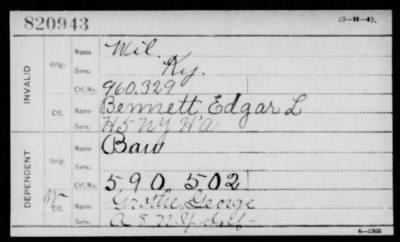 820943
(3-H-4).
INVALID
Orig.
Name Wil.
Serv. Ky.
Ctf. No. 960.329
Ctf.
Name Bennett, Edgar L
Serv. H5 NY H'A
DEPENDENT
Orig.
Name Baw
Serv.
Ctf. No. 590,502
Ctf.
Name George
Serv.